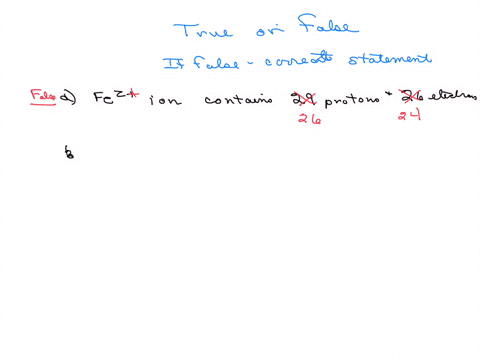 True or False
If False - correct statement
False a) Fe2+ ion contains 29 protons + 26 electrons
26 24
b